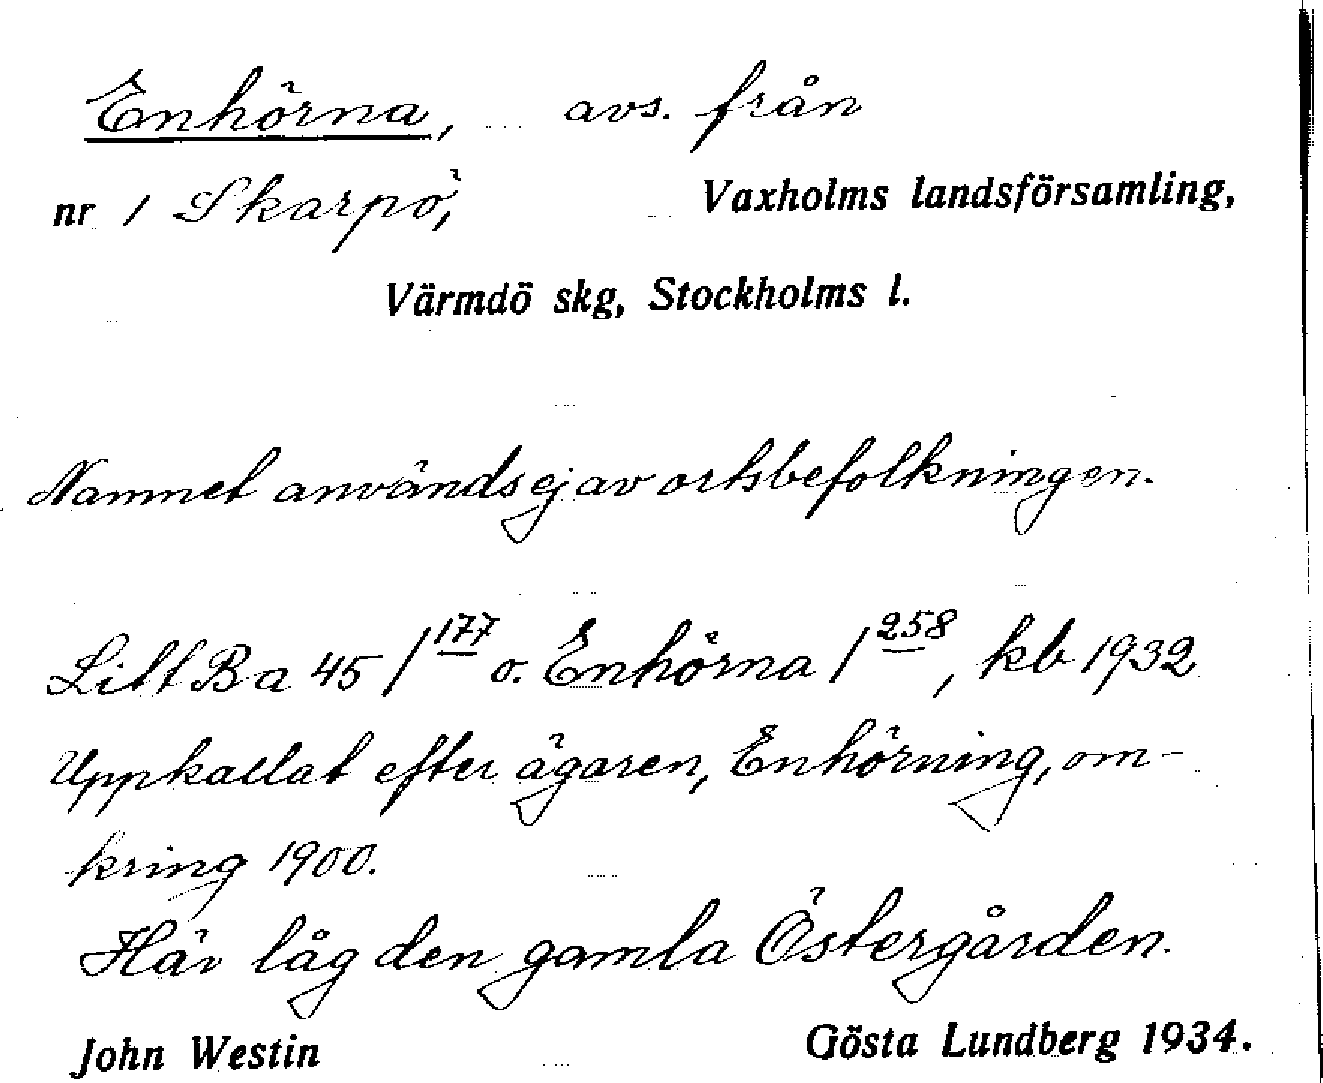 Enhörna, avs. från
nr 1 Skarpö, Vaxholms landsförsamling,
Värmdö skg, Stockholms l.
Namnet användes ej av ortsbefolkningen.
Litt Ba 45 / 177 o. Enhörna / 258, kb 1932
Uppkallat efter ägaren, Enhörning, om-
kring 1900.
Här låg den gamla Östergården.
John Westin Gösta Lundberg 1934.